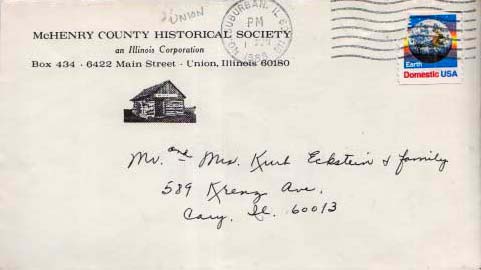 UNION
McHENRY COUNTY HISTORICAL SOCIETY
an Illinois Corporation
Box 434 · 6422 Main Street · Union, Illinois 60180
UBURBAN, IL
PM
Earth
Domestic USA
Mr. and Mrs. Kurt Eckstein & family
589 Krenz Ave.
Cary, Il. 60013